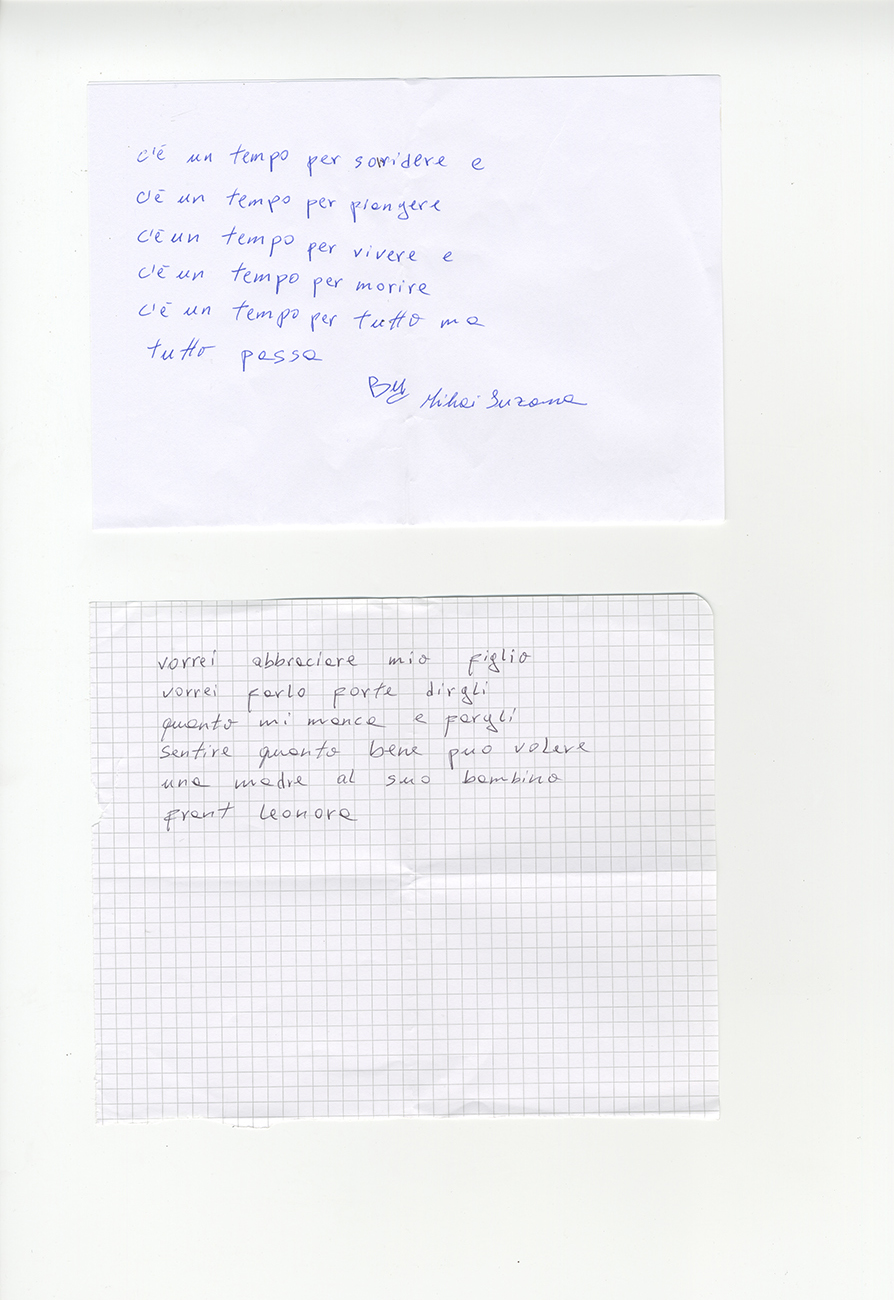 c'è un tempo per sorridere e
c'è un tempo per piangere
c'è un tempo per vivere e
c'è un tempo per morire
c'è un tempo per tutto ma
tutto passa
By Mihai Suzana
vorrei abbraciare mio figlio
vorrei farlo forte dirgli
quanto mi manca e fargli
sentire quanto bene può volere
una madre al suo bambino
frant leonora